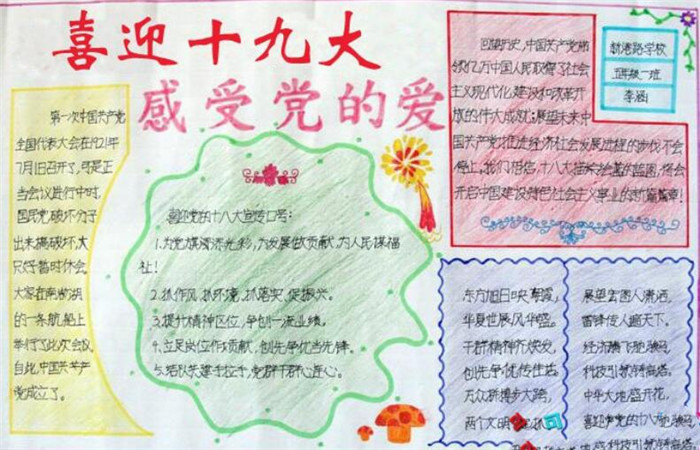 喜迎十九大
感受党的爱
第一次中国共产党
全国代表大会在1921年
7月1日召开了,可是正
当会议进行中时,
国民党破坏分子
出来搞破坏,大
只好暂时休会,
大家在南湖湖
的一条航船上
举行了此次会议
自此,中国共产
党成立了。
喜迎党的十八大宣传口号:
1.为党旗添光彩,为发展做贡献,为人民谋福
祉!
2.抓作风,抓环境,抓落实,促振兴。
3.提升精神区位,争创一流业绩。
4.立足岗位作贡献,创先争优当先锋。
5.结队共建手拉手,党群干群心连心。
回望历史,中国共产党带
领亿万中国人民取得了社会
主义现代化建设和改革开
放的伟大成就;展望未来中
国共产党推进经济社会发展进程的步伐不会
停止,我们相信,十八大描绘的蓝图,将会
开启中国建设特色社会主义事业的新篇章!
新港路学校
五年级一班
李涵
东方旭日映朝霞,
华夏世展风华盛。
干群精神齐焕发,
创先争优传佳话。
万众新挪步大跨,
两个文明
展望宏图人潇洒,
雷锋传人遍天下。
经济腾飞驰骏马,
科技引领铸高塔。
中华大地盛开花,
喜迎党的十八大
科技引领铸高塔。